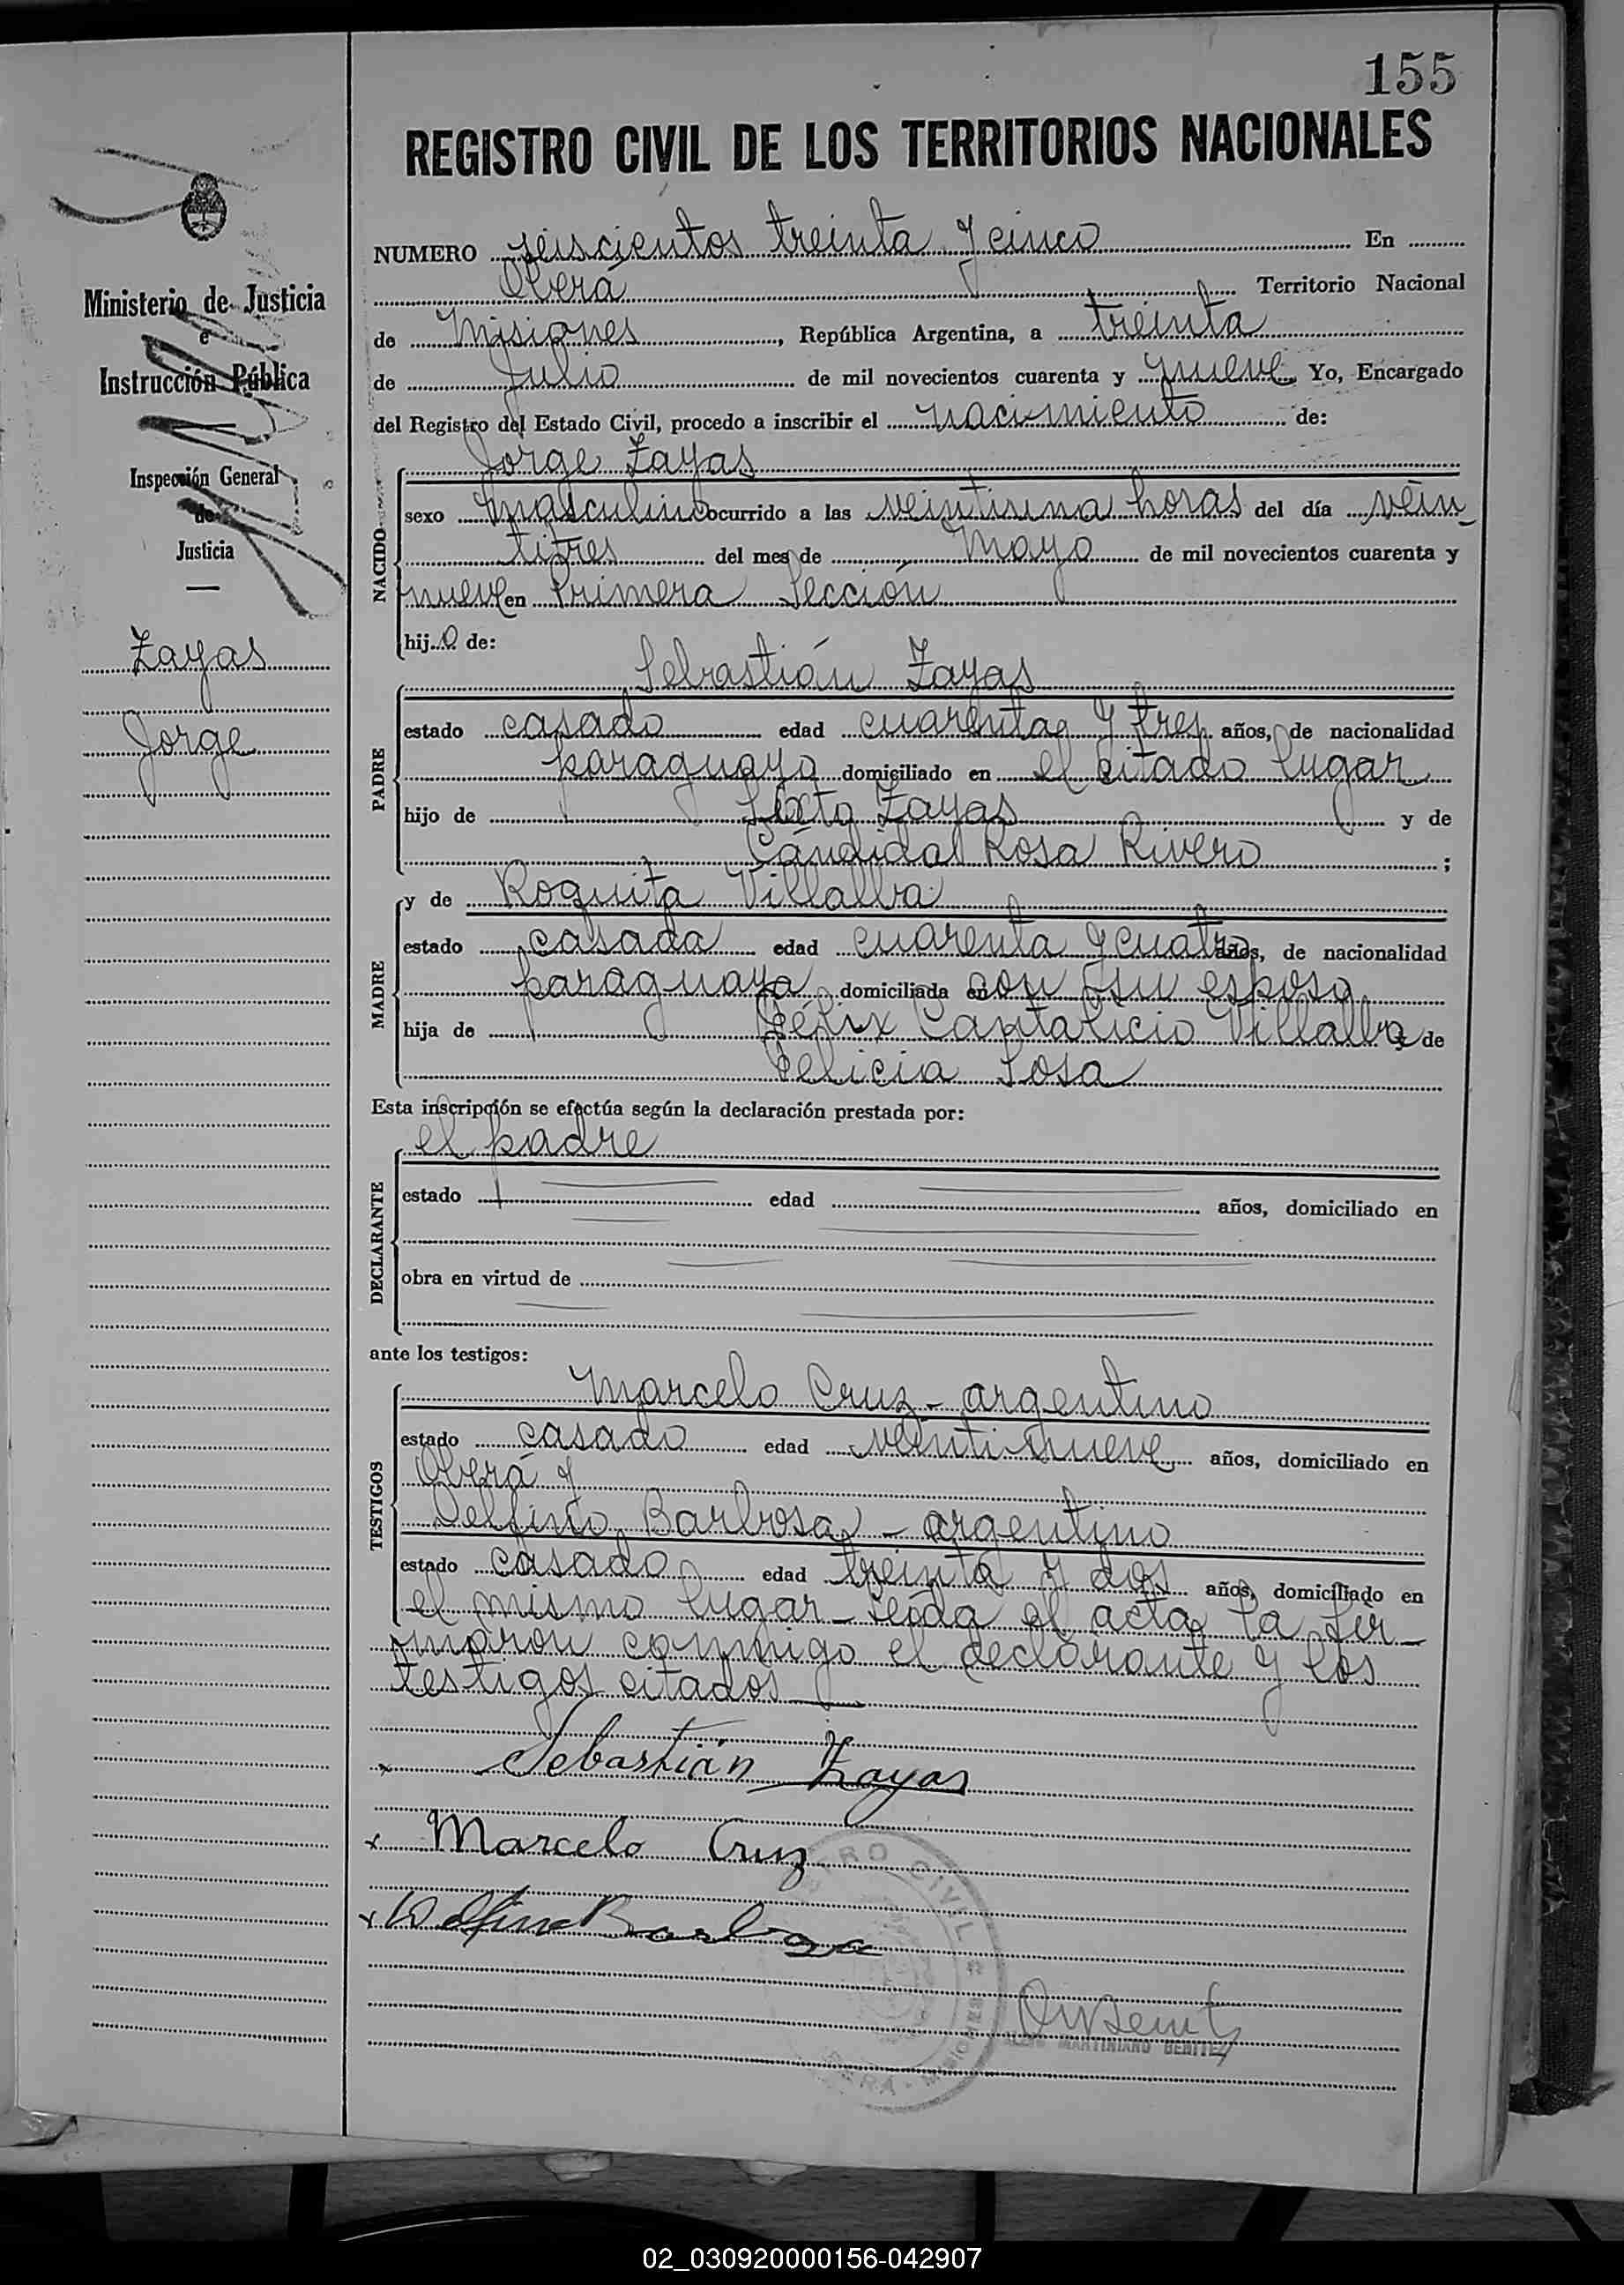 155
REGISTRO CIVIL DE LOS TERRITORIOS NACIONALES
Ministerio de Justicia
e
Instrucción Pública
Inspección General
de
Justicia
Zayas
Jorge
NUMERO seiscientos treinta y cinco En
Oberá Territorio Nacional
de Misiones, República Argentina, a treinta
de Julio de mil novecientos cuarenta y nueve. Yo, Encargado
del Registro del Estado Civil, procedo a inscribir el nacimiento de:
NACIDO
Jorge Zayas
sexo masculino ocurrido a las veintiuna horas del día vein-
titres del mes de Mayo de mil novecientos cuarenta y
nueve en Primera Sección
hijo de:
PADRE
Sebastián Zayas
estado casado edad cuarenta y tres años, de nacionalidad
paraguaya domiciliado en el citado lugar
hijo de Sixto Zayas y de
Cándida Rosa Rivero ;
MADRE
y de Roquita Villalba
estado casada edad cuarenta y cuatro años, de nacionalidad
paraguaya domiciliada en con su esposo
hija de Félix Cantalicio Villalba y de
Felicia Sosa
Esta inscripción se efectúa según la declaración prestada por:
DECLARANTE
el padre
estado edad años, domiciliado en
obra en virtud de
ante los testigos:
TESTIGOS
Marcelo Cruz - argentino
estado casado edad veintinueve años, domiciliado en
Oberá y
Delfino Barbosa - argentino
estado casado edad treinta y dos años, domiciliado en
el mismo lugar - Leída el acta la fir-
maron conmigo el declarante y los
testigos citados
x Sebastián Zayas
x Marcelo Cruz
x Delfino Barboza
REGISTRO CIVIL
OBERA - MISIONES
MARTINIANO BENITEZ
02_030920000156-042907